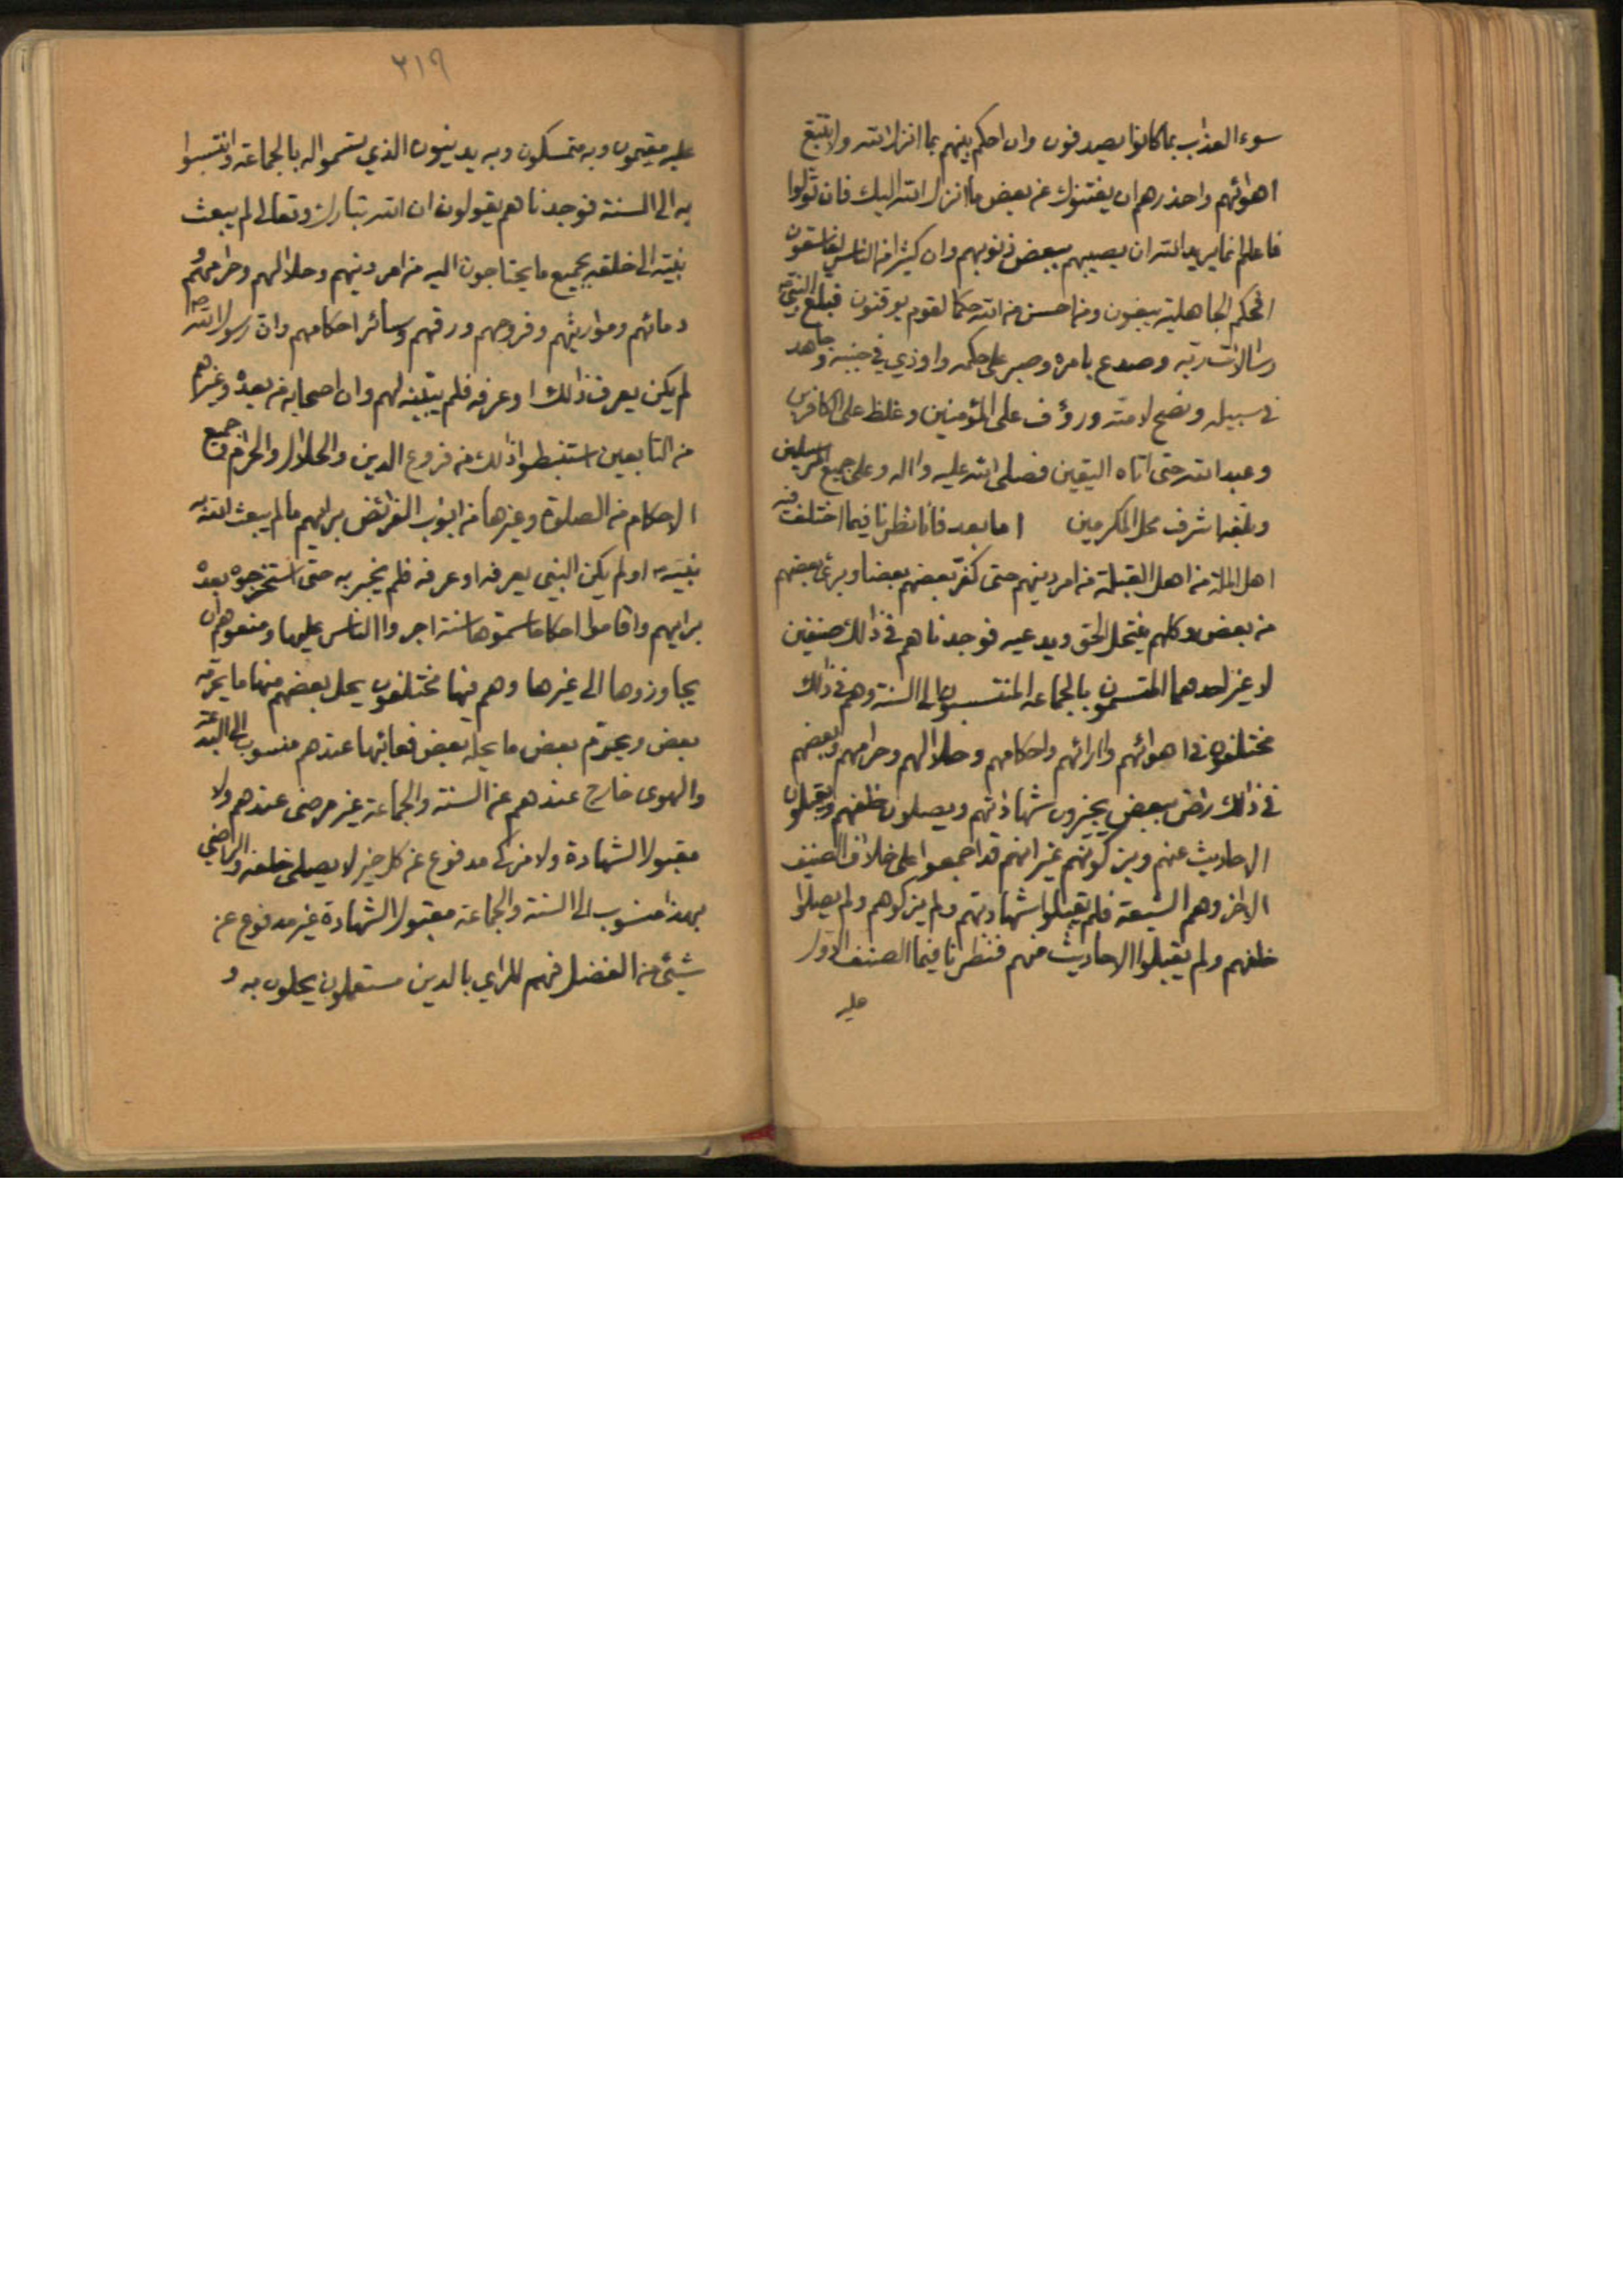 سوء العذاب بما كانوا يصدفون وان احكم بينهم بما انزل الله ولا تتبع
اهوائهم واحذرهم ان يفتنوك عن بعض ما انزل الله اليك فان تولوا
فاعلم انما يريد الله ان يصيبهم ببعض ذنوبهم وان كثيرا من الناس لفاسقون
افحكم الجاهلية يبغون ومن احسن من الله حكما لقوم يوقنون فبلغ النبي ص
رسالات ربه وصدع بامره وصبر على حكمه واوذي في جنبه وجاهد
في سبيله ونصح لامته ورؤف على المؤمنين وغلظ على الكافرين
وعبد الله حتى اتاه اليقين فصلى الله عليه واله وعلى جميع المرسلين
وبلغه اشرف محل المكرمين اما بعد فانا نظرنا فيما اختلفت فيه
اهل الملة من اهل القبلة من امر دينهم حتى كفر بعضهم بعضا وبرئ بعضهم
من بعض وكلهم ينتحل الحق ويدعيه فوجدناهم في ذلك صنفين
لا غير احدهما المتسمون بالجماعه المنتسبون الى السنة وهم في ذلك
مختلفون في اهوائهم وارائهم واحكامهم وحلالهم وحرامهم وبعضهم
في ذلك راض ببعض يجيزون شهاداتهم ويصلون خلفهم ويقبلون
الاحاديث عنهم ويزكونهم غير انهم قد اجمعوا على خلاف الصنف
الاخر وهم الشيعة فلم يقبلوا شهادتهم ولم يزكوهم ولم يصلوا
خلفهم ولم يقبلوا الاحاديث منهم فنظرنا فيما الصنف الاول
عليه
٣١٩
عليه مقيمون وبه متمسكون وبه يدينون الذي تسموا له بالجماعة وانتسبوا
به الى السنة فوجدناهم يقولون ان الله تبارك وتعالى لم يبعث
نبيه الى خلقه بجميع ما يحتاجون اليه من امر دينهم وحلالهم وحرامهم و
دمائهم ومواريثهم وفروجهم ورقهم وسائر احكامهم وان رسول الله ص
لم يكن يعرف ذلك او عرفه فلم يبينه لهم وان اصحابه من بعده وغيرهم
من التابعين استنبطوا ذلك من فروع الدين والحلال والحرام وجميع
الاحكام من الصلوة وغيرها من ابواب الفرائض برايهم ما لم يبعث الله به
نبيه او لم يكن النبي يعرفه او عرفه فلم يخبر به حتى استخرجوه بعده
برايهم واقاموا احكاما سموها سنة اجروا الناس عليها ومنعوهم ان
يجاوزوها الى غيرها وهم فيها مختلفون يحل بعضهم منها ما يحرمه
بعض ويحرم بعض ما يحله بعض فعائبها عندهم منسوب الى البدعة
والهوى خارج عندهم عن السنة والجماعة غير مرضى عندهم ولا
مقبول الشهادة ولا مزكى مدفوع عن كل خير لا يصلى خلفه والراضي
بهذا منسوب الى السنة والجماعة مقبول الشهادة غير مدفوع عن
شيئ من الفضل فهم للراي بالدين مستعملون يحلون به و